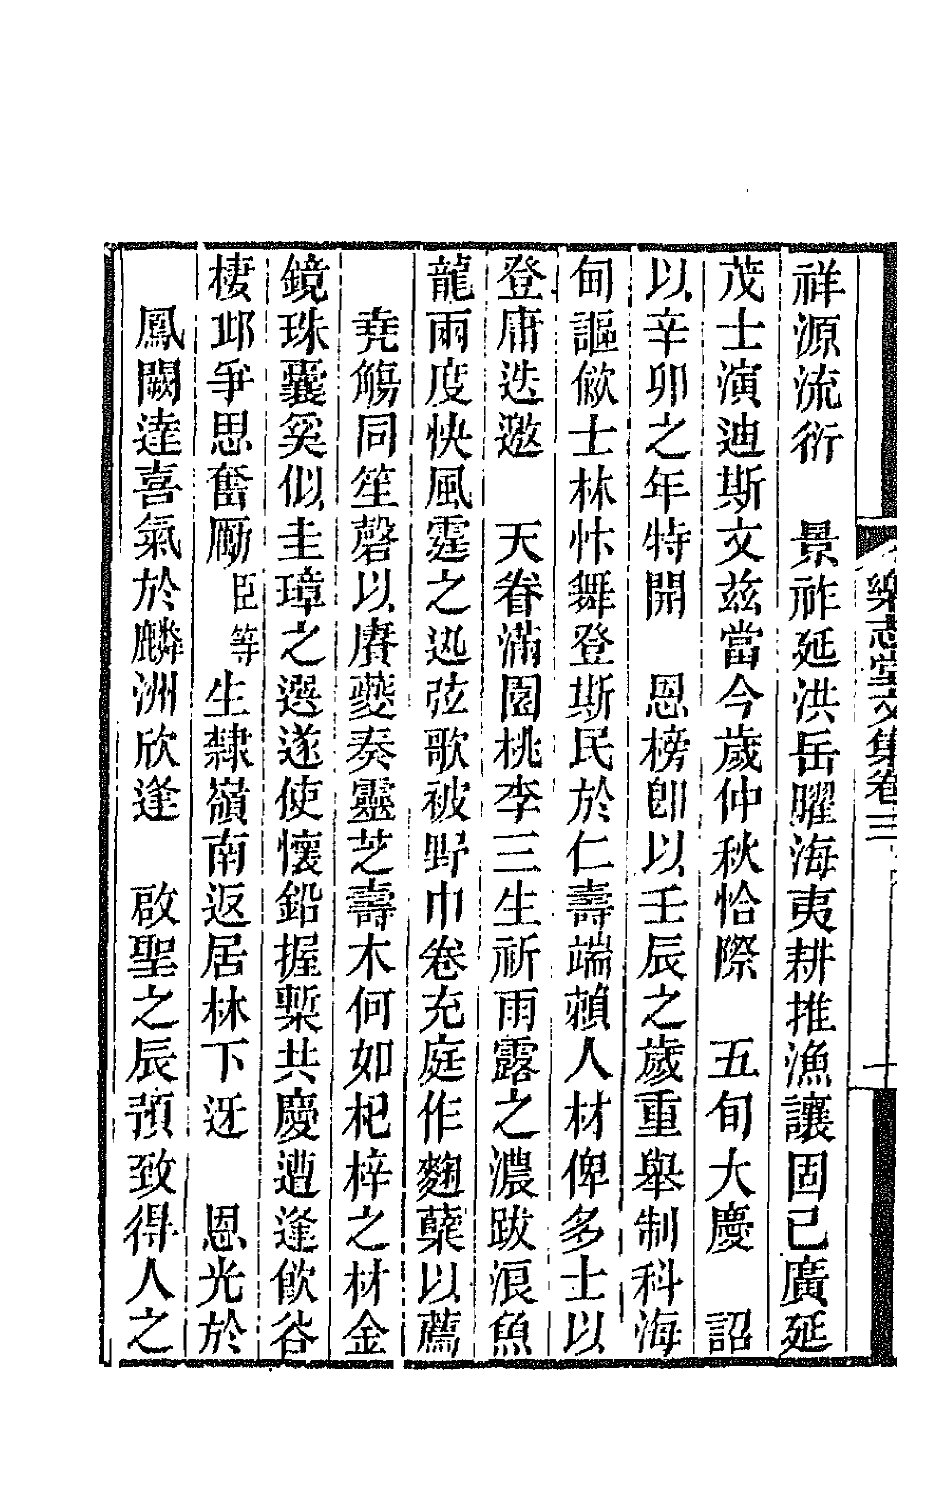 樂志堂文集卷三
十
祥源流衍　景祚延洪岳曜海夷耕推漁讓固已廣延
茂士演迪斯文茲當今歲仲秋恰際　五旬大慶　詔
以辛卯之年特開　恩榜卽以壬辰之歲重舉制科海
甸謳歈士林忭舞登斯民於仁壽端賴人材俾多士以
登庸迭邀　天眷滿園桃李三生祈雨露之濃跋浪魚
龍兩度快風霆之迅弦歌被野巾卷充庭作麴櫱以薦
堯觴同笙磬以賡夔奏靈芝壽木何如杞梓之材金
鏡珠囊奚似圭璋之選遂使懷鉛握槧共慶遭逢飮谷
棲邱爭思奮勵臣等生隸嶺南返居林下迓　恩光於
鳳闕達喜氣於麟洲欣逢　啟聖之辰預致得人之